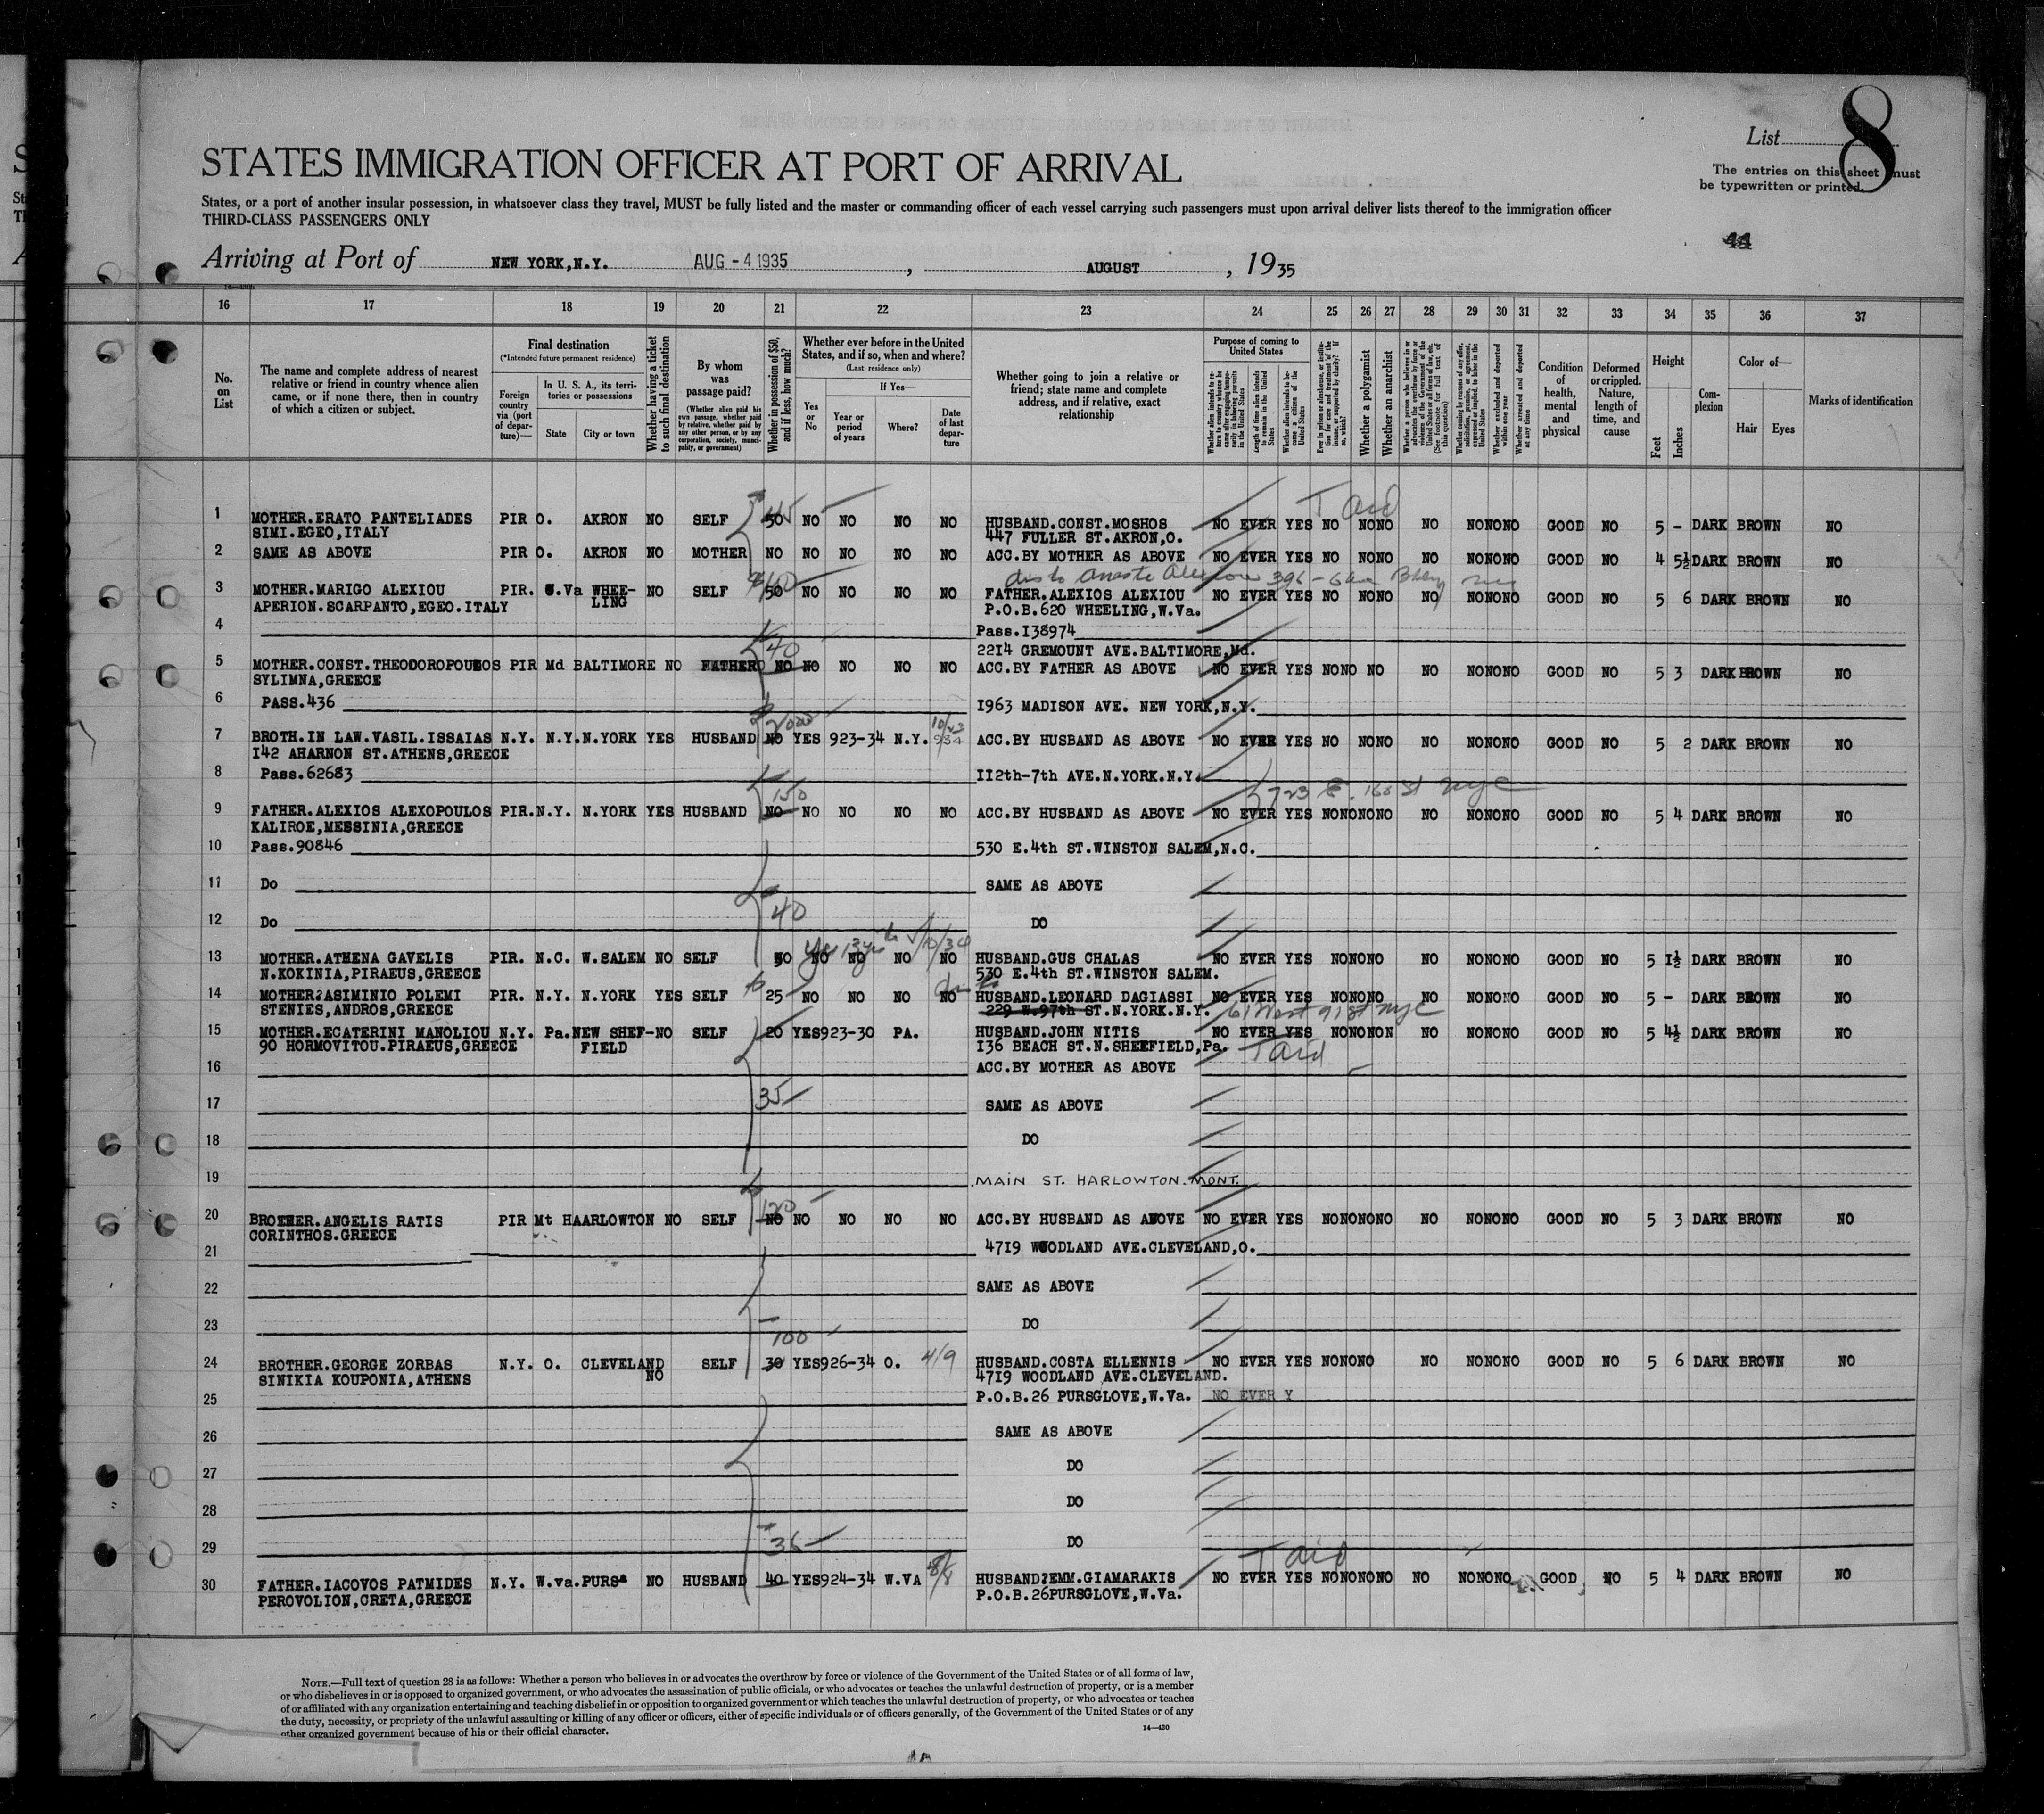 List 8
The entries on this sheet must
be typewritten or printed.
STATES IMMIGRATION OFFICER AT PORT OF ARRIVAL
States, or a port of another insular possession, in whatsoever class they travel, MUST be fully listed and the master or commanding officer of each vessel carrying such passengers must upon arrival deliver lists thereof to the immigration officer
THIRD-CLASS PASSENGERS ONLY
44
Arriving at Port of NEW YORK,N.Y. AUG - 4 1935 , AUGUST , 1935
16 17 18 19 20 21 22 23 24 25 26 27 28 29 30 31 32 33 34 35 36 37
No. on List
The name and complete address of nearest relative or friend in country whence alien came, or if none there, then in country of which a citizen or subject.
Final destination
(*Intended future permanent residence)
Foreign country via (port of departure)—
In U. S. A., its territories or possessions
State
City or town
Whether having a ticket to such final destination
By whom was passage paid?
(Whether alien paid his own passage, whether paid by relative, whether paid by any other person, or by any corporation, society, municipality, or government)
Whether in possession of $50, and if less, how much?
Whether ever before in the United States, and if so, when and where?
(Last residence only)
Yes or No
If Yes—
Year or period of years
Where?
Date of last departure
Whether going to join a relative or friend; state name and complete address, and if relative, exact relationship
Purpose of coming to United States
Length of time alien intends to remain in the United States
Whether alien intends to become a citizen of the United States
Whether a polygamist
Whether an anarchist
Condition of health, mental and physical
Deformed or crippled. Nature, length of time, and cause
Height
Feet
Inches
Complexion
Color of—
Hair
Eyes
Marks of identification
T Aid
1 MOTHER.ERATO PANTELIADES PIR O. AKRON NO SELF 50 45 NO NO NO NO HUSBAND.CONST.MOSHOS NO EVER YES NO NONO NO NONONO GOOD NO 5 - DARK BROWN NO
SIMI.EGEO,ITALY 447 FULLER ST.AKRON,O.
2 SAME AS ABOVE PIR O. AKRON NO MOTHER NO NO NO NO NO ACC.BY MOTHER AS ABOVE NO EVER YES NO NONO NO NONONO GOOD NO 4 5½ DARK BROWN NO
3 MOTHER.MARIGO ALEXIOU PIR. W.Va WHEE- NO SELF 50 NO NO NO NO FATHER.ALEXIOS ALEXIOU NO EVER YES NO NONO NO NONONO GOOD NO 5 6 DARK BROWN NO
APERION.SCARPANTO,EGEO.ITALY LING P.O.B.620 WHEELING,W.Va.
4 Pass.I38974
40 2214 GREMOUNT AVE.BALTIMORE,Md.
5 MOTHER.CONST.THEODOROPOULOS PIR Md BALTIMORE NO FATHER NO NO NO NO NO ACC.BY FATHER AS ABOVE NO EVER YES NONO NO NO NONONO GOOD NO 5 3 DARK BROWN NO
SYLIMNA,GREECE
6 PASS.436 I963 MADISON AVE. NEW YORK,N.Y.
7 BROTH.IN LAW.VASIL.ISSAIAS N.Y. N.Y. N.YORK YES HUSBAND NO YES 923-34 N.Y. ACC.BY HUSBAND AS ABOVE NO EVER YES NO NONO NO NONONO GOOD NO 5 2 DARK BROWN NO
I42 AHARNON ST.ATHENS,GREECE
8 Pass.62683 II2th-7th AVE.N.YORK.N.Y.
150 723 E. 160 St NYC
9 FATHER.ALEXIOS ALEXOPOULOS PIR.N.Y. N.YORK YES HUSBAND NO NO NO NO NO ACC.BY HUSBAND AS ABOVE NO EVER YES NONONONO NO NONONO GOOD NO 5 4 DARK BROWN NO
KALIROE,MESSINIA,GREECE
10 Pass.90846 530 E.4th ST.WINSTON SALEM,N.C.
11 Do SAME AS ABOVE
12 Do 40 DO
13 MOTHER.ATHENA GAVELIS PIR. N.C. W.SALEM NO SELF 50 NO NO NO NO HUSBAND.GUS CHALAS NO EVER YES NONONO NO NONONO GOOD NO 5 I½ DARK BROWN NO
N.KOKINIA,PIRAEUS,GREECE 530 E.4th ST.WINSTON SALEM.
14 MOTHER?ASIMINIO POLEMI PIR. N.Y. N.YORK YES SELF 25 NO NO NO NO HUSBAND.LEONARD DAGIASSI NO EVER YES NONONO NO NONONO GOOD NO 5 - DARK BROWN NO
STENIES,ANDROS,GREECE 229 W.97th ST.N.YORK.N.Y. 61 West 91 St NYC
15 MOTHER.ECATERINI MANOLIOU N.Y. Pa.NEW SHEF-NO SELF 20 YES923-30 PA. HUSBAND.JOHN NITIS NO EVER YES NONONON NO NONONO GOOD NO 5 4½ DARK BROWN NO
90 HORMOVITOU.PIRAEUS,GREECE FIELD I36 BEACH ST.N.SHEEFIELD,Pa. T Aid
16 ACC.BY MOTHER AS ABOVE
17 35 SAME AS ABOVE
18 DO
19 MAIN ST. HARLOWTON. MONT.
20 BROTHER.ANGELIS RATIS PIR Mt HAARLOWTON NO SELF NO NO NO NO NO ACC.BY HUSBAND AS ABOVE NO EVER YES NONONONO NO NONONO GOOD NO 5 3 DARK BROWN NO
CORINTHOS.GREECE
21 4719 WOODLAND AVE.CLEVELAND,O.
22 SAME AS ABOVE
23 DO
100
24 BROTHER.GEORGE ZORBAS N.Y. O. CLEVELAND SELF 30 YES926-34 O. 4/9 HUSBAND.COSTA ELLENNIS NO EVER YES NONONO NO NONONO GOOD NO 5 6 DARK BROWN NO
SINIKIA KOUPONIA,ATHENS NO 4719 WOODLAND AVE.CLEVELAND.
25 P.O.B.26 PURSGLOVE,W.Va. NO EVER Y
26 SAME AS ABOVE
27 DO
28 DO
29 36 DO
T Aid
30 FATHER.IACOVOS PATMIDES N.Y. W.Va.PURSa NO HUSBAND 40 YES924-34 W.VA 8/8 HUSBAND?EMM.GIAMARAKIS NO EVER YES NONONONO NO NONONO GOOD NO 5 4 DARK BROWN NO
PEROVOLION,CRETA,GREECE P.O.B.26PURSGLOVE,W.Va.
NOTE.—Full text of question 28 is as follows: Whether a person who believes in or advocates the overthrow by force or violence of the Government of the United States or of all forms of law,
or who disbelieves in or is opposed to organized government, or who advocates the assassination of public officials, or who advocates or teaches the unlawful destruction of property, or is a member
of or affiliated with any organization entertaining and teaching disbelief in or opposition to organized government or which teaches the unlawful destruction of property, or who advocates or teaches
the duty, necessity, or propriety of the unlawful assaulting or killing of any officer or officers, either of specific individuals or of officers generally, of the Government of the United States or of any
other organized government because of his or their official character.
14—430